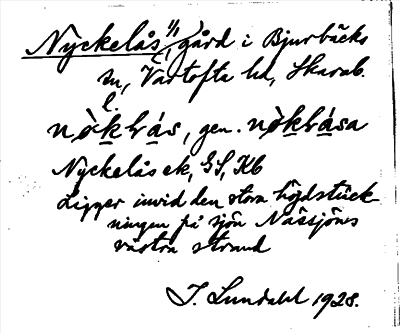 Nyckelås 1/1, gård i Bjurbäcks
sn, Vartofta hd, Skarab.
l.
nò̀krás, gen. nòkrása
Nyckelås ek, GS, Kb
Ligger invid den stora höjdstück-
ningen på sjön Nässjöns
västra strand
J. Lundahl 1928.